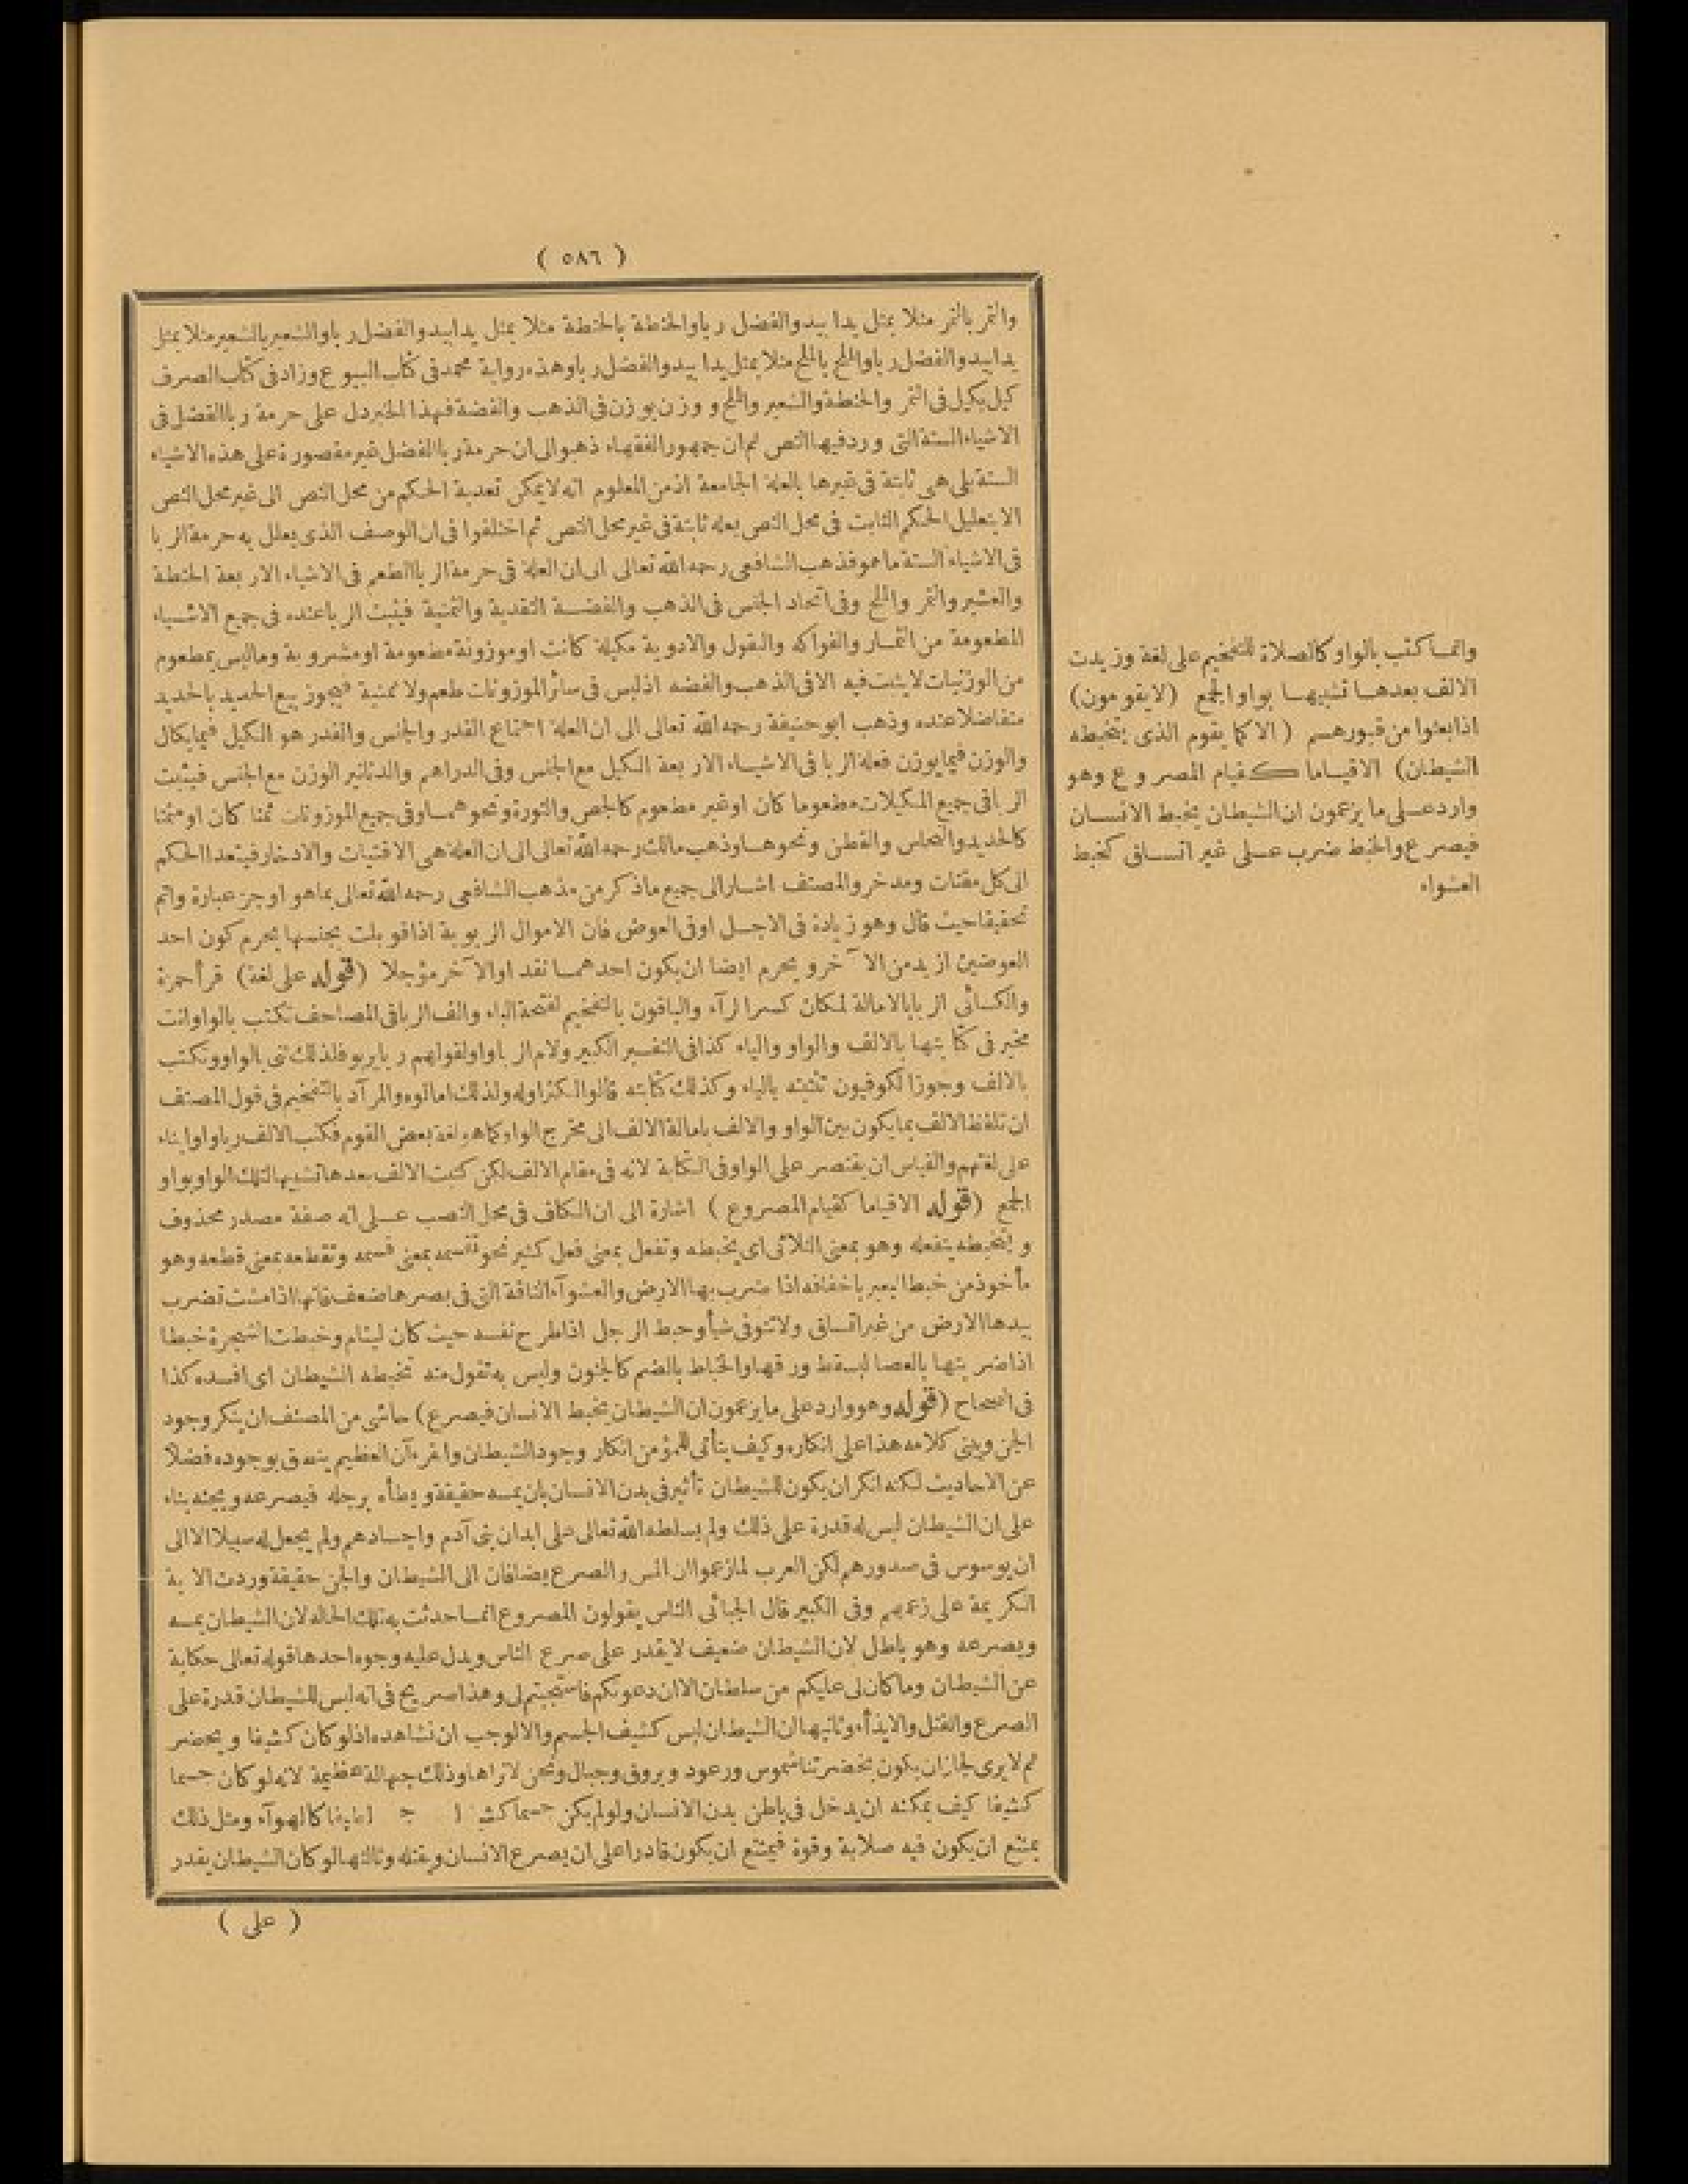 ( ٥٨٦ )
والتمر بالتمر مثلا بمثل يدا بيد والفضل ربا والحنطة بالحنطة مثلا بمثل يدا بيد والفضل ربا والشعير بالشعير مثلا بمثل
يدا بيد والفضل ربا والملح بالملح مثلا بمثل يدا بيد والفضل ربا وهذه رواية محمد فى كتاب البيوع وزاد فى كتاب الصرف
كيل بكيل فى التمر والحنطة والشعير والملح و وزن بوزن فى الذهب والفضة فهذا الخبر دل على حرمة ربا الفضل فى
الاشياء الستة التى ورد فيها النص ثم ان جمهور الفقهاء ذهبوا الى ان حرمة ربا الفضل غير مقصورة على هذه الاشياء
الستة بلى هى ثابتة فى غيرها بالعلة الجامعة اذ من المعلوم انه لايمكن تعدية الحكم من محل النص الى غير محل النص
الا بتعليل الحكم الثابت فى محل النص بعلة ثابتة فى غير محل النص ثم اختلفوا فى ان الوصف الذى يعلل به حرمة الربا
فى الاشياء الستة ماهو فذهب الشافعى رحمه الله تعالى الى ان العلة فى حرمة الربا الطعم فى الاشياء الاربعة الحنطة
والعشير والتمر والملح وفى اتحاد الجنس فى الذهب والفضة النقدية والثمنية فيثبت الربا عنده فى جميع الاشياء
المطعومة من الثمار والفواكه والبقول والادوية مكيلة كانت او موزونة مطعومة او مشروبة وماليس بمطعوم
من الوزنيات لا يثبت فيه الا فى الذهب والفضه اذليس فى سائر الموزونات طعم ولا ثمنية فيجوز بيع الحديد بالحديد
متفاضلا عنده وذهب ابو حنيفة رحمه الله تعالى الى ان العلة اجتماع القدر والجنس والقدر هو الكيل فيما يكال
والوزن فيما يوزن فعلة الربا فى الاشياء الاربعة الكيل مع الجنس وفى الدراهم والدنانير الوزن مع الجنس فيثبت
الربا فى جميع المكيلات مطعوما كان او غير مطعوم كالجص والنورة ونحوهما وفى جميع الموزونات ثمنا كان او مثمنا
كالحديد والنحاس والقطن ونحوها وذهب مالك رحمه الله تعالى الى ان العلة هى الاقتيات والادخار فيتعدا الحكم
الى كل مقتات ومدخر والمصنف اشار الى جميع ماذكر من مذهب الشافعى رحمه الله تعالى بما هو اوجز عبارة واتم
تحقيقا حيث قال وهو زيادة فى الاجل او فى العوض فان الاموال الربوية اذا قوبلت بجنسها يحرم كون احد
العوضين ازيد من الآخر ويحرم ايضا ان يكون احدهما نقدا والآخر مؤجلا (قوله على لغة) قرأ حمزة
والكسائى الربا بالامالة لمكان كسر الرآء والباقون بالتفخيم لفتحة الباء والف الربا فى المصاحف تكتب بالواو وانت
مخير فى كتابتها بالالف والواو والياء كذا فى التفسير الكبير ولام الربا واو لقولهم ربا يربو فلذلك ثنى بالواو وتكتب
بالالف وجوز الكوفيون تثنيته بالياء وكذلك كتابته قالوا لكسر اوله ولذلك امالوه والمرآد بالتفخيم فى قول المصنف
ان تلفظ الالف بما يكون بين الواو والالف بامالة الالف الى مخرج الواو كما هو لغة بعض القوم فكتب الالف ربا واوا بناء
على لغتهم والقياس ان يقتصر على الواو فى الكتابة لانه فى مقام الالف لكن كتبت الالف بعدها تشبيها لتلك الواو بواو
الجمع (قوله الاقياما كقيام المصروع ) اشارة الى ان الكاف فى محل النصب على انه صفة مصدر محذوف
و يتخبطه يتفعله وهو بمعنى الثلاثى اى يخبطه وتفعل بمعنى فعل كثير نحو تقسمه بمعنى قسمه وتقطعه بمعنى قطعه وهو
مأخوذ من خبط البعير باخفافه اذا ضرب بها الارض والعشوآء الناقة التى فى بصرها ضعف فانها اذا مشت تضرب
بيدها الارض من غير اتساق ولا تتوقى شيأ وخبط الرجل اذا طرح نفسه حيث كان لينام وخبطت الشجرة خبطا
اذا ضربتها بالعصا ليسقط ورقها والخباط بالضم كالجنون وليس به تقول منه تخبطه الشيطان اى افسده كذا
فى الصحاح (قوله وهو وارد على ما يزعمون ان الشيطان يخبط الانسان فيصرع) حاشى من المصنف ان ينكر وجود
الجن ويبنى كلامه هذا على انكاره وكيف يتأتى للمؤمن انكار وجود الشيطان والقرءآن العظيم ينطق بوجوده فضلا
عن الاحاديث لكنه انكر ان يكون للشيطان تأثير فى بدن الانسان بان يمسه حقيقة ويطأه برجله فيصرعه ويجنه بناء
على ان الشيطان ليس له قدرة على ذلك ولم يسلطه الله تعالى على ابدان بنى آدم واجسادهم ولم يجعل له سبيلا الا الى
ان يوسوس فى صدورهم لكن العرب لما زعموا ان المس والصرع يضافان الى الشيطان والجن حقيقة وردت الآية
الكريمة على زعمهم وفى الكبير قال الجبائى الناس يقولون المصروع انما حدثت به تلك الحاله لان الشيطان يمسه
ويصرعه وهو باطل لان الشيطان ضعيف لا يقدر على صرع الناس ويدل عليه وجوه احدها قوله تعالى حكاية
عن الشيطان وما كان لى عليكم من سلطان الا ان دعوتكم فاستجبتم لى وهذا صريح فى انه ليس للشيطان قدرة على
الصرع والقتل والايذآء وثانيها ان الشيطان ليس كثيف الجسم والا لوجب ان نشاهده اذلو كان كثيفا ويحضر
ثم لايرى لجاز ان يكون بحضرتنا شموس ورعود وبروق وجبال ونحن لا نراها وذلك جهالة عظيمة لانه لو كان جسما
كثيفا كيف يمكنه ان يدخل فى باطن بدن الانسان ولو لم يكن جسما كالهوآء ومثل ذلك
يمتنع ان يكون فيه صلابة وقوة فيمتنع ان يكون قادرا على ان يصرع الانسان ويقتله وثالثها لو كان الشيطان يقدر
( على )
وانما كتب بالواو كالصلاة للتفخيم على لغة وزيدت
الالف بعدها تشبيها بواو الجمع (لايقومون)
اذا بعثوا من قبورهم ( الا كما يقوم الذى يتخبطه
الشيطان) الاقياما كقيام المصروع وهو
وارد على ما يزعمون ان الشيطان يخبط الانسان
فيصرع والخبط ضرب على غير اتساق كخبط
العشواء